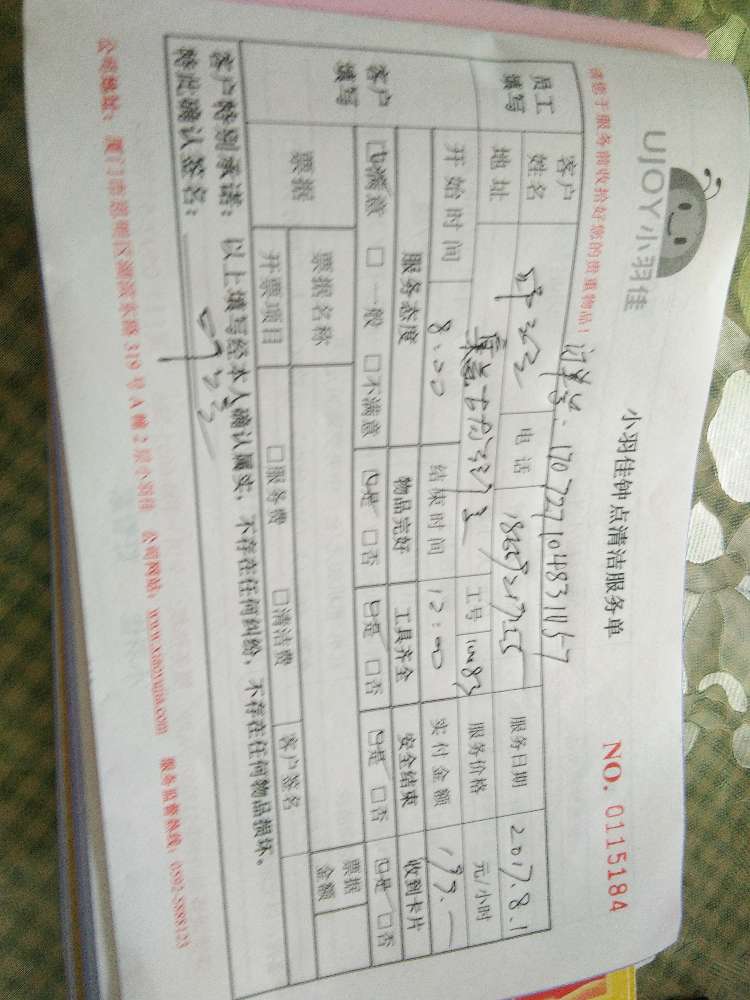 UJOY小羽佳
小羽佳钟点清洁服务单
NO. 0115184
请您于服务前收拾好您的贵重物品!
订单号: 1707271048311157
员工填写
客户姓名
电话
服务日期
2017.8.1
地址
工号
10083
服务价格
元/小时
开始时间
8:00
结束时间
12:00
实付金额
客户填写
服务态度
物品完好
工具齐全
安全结束
收到卡片
☑满意 □一般 □不满意
☑是 □否
☑是 □否
☑是 □否
☑是 □否
票据
票据名称
票据金额
开票项目
□服务费 □清洁费
客户签名
客户特别承诺:以上填写经本人确认属实,不存在任何纠纷,不存在任何物品损坏。
特此确认签名:
公司地址:厦门市思明区湖滨东路319号A幢2层小羽佳 公司网站:www.xiaoyujia.com 服务监督热线:0592-5888123